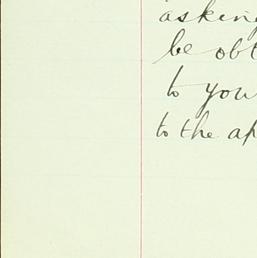 asking
be obt
to you
to the ap